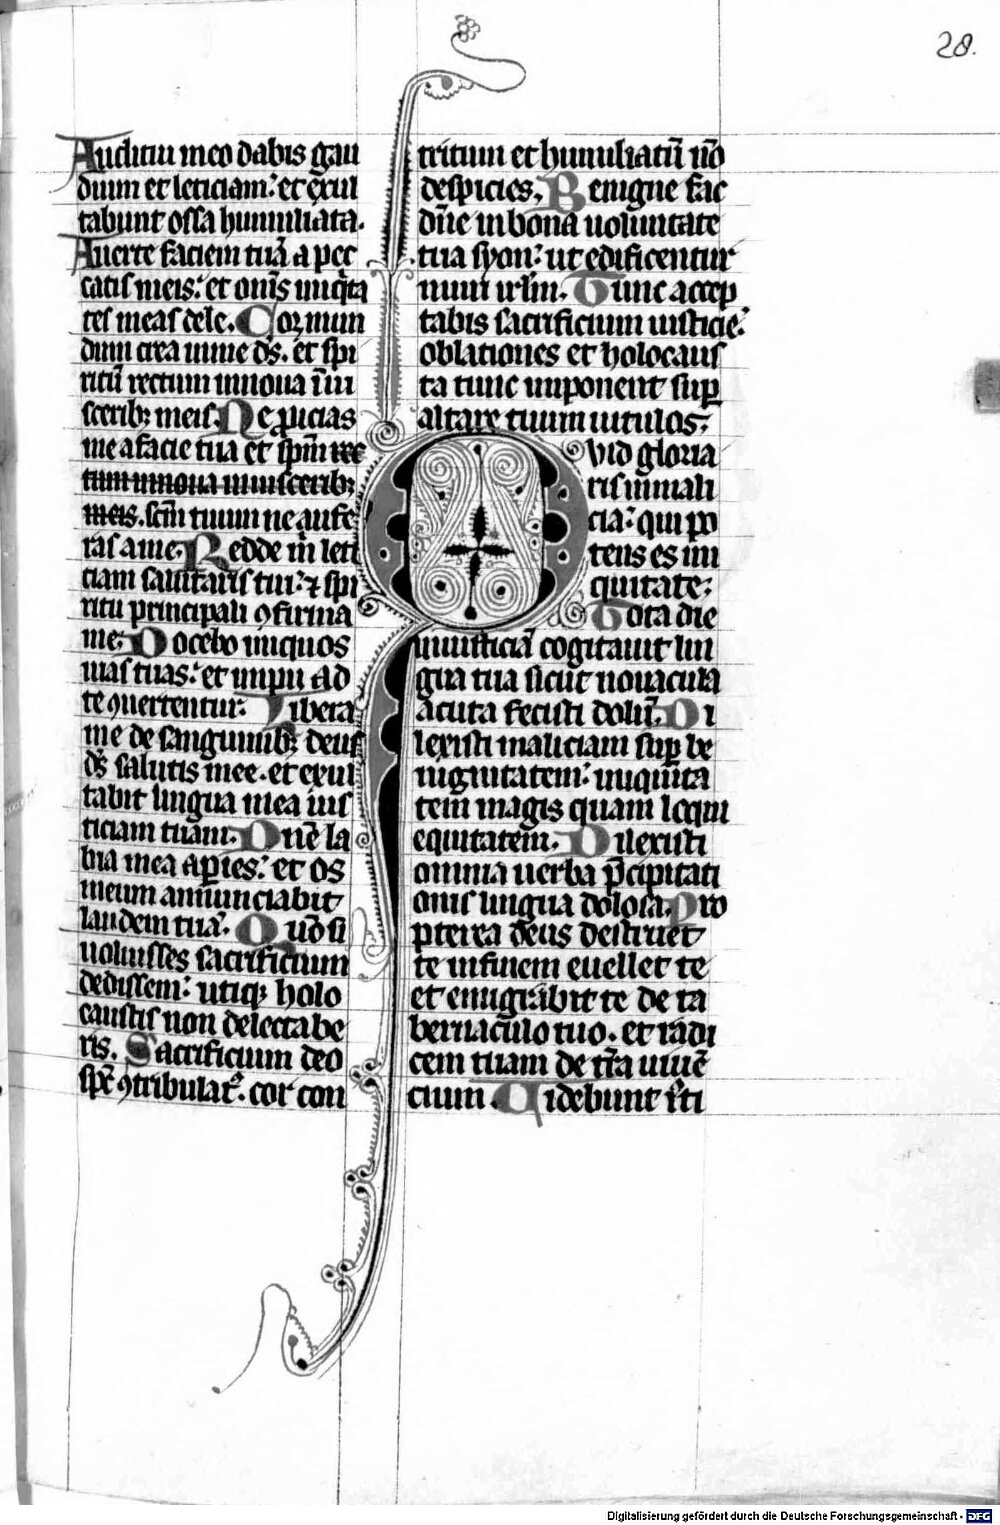 28.
Auditui meo dabis gau
dium et leticiam: et exul
tabunt ossa humiliata.
Auerte faciem tuā a pec
catis meis: et om̄s iniq̇ta
tes meas dele. Cor mun
dum crea in me ds̄. et spi
ritū rectum innoua ī ui
scerib; meis. Ne ꝓicias
me a facie tua et spm̄ rec
tum innoua in uiscerib;
meis. scm̄ tuum ne aufe
ras a me. Redde m̄ leti
ciam salutaris tui: ⁊ spi
ritu principali ꝯfirma
me: Docebo iniquos
uias tuas: et impii ad
te ꝯuertentur: Libera
me de sanguinib; deus
ds̄ salutis mee. et exul
tabit lingua mea ius
ticiam tuam. Dn̄e la
bia mea aꝑies: et os
meum annunciabit
laudem tuā. Qūo si
uoluisses sacrificium
dedissem: utiqꝫ holo
caustis non delectabe
ris. Sacrificium deo
spc̄ ꝯtribulat᷒. cor con
tritum et humiliatū n̄o
despicies. Benigne fac
dn̄e in bona uoluntate
tua syon: ut edificentur
muri irl̄m. Tunc accep
tabis sacrificium iusticie:
oblationes et holocaus
ta tunc imponent suꝑ
altare tuum uitulos:
Quid gloria
ris in mali
cia: qui po
tens es in i
quitate:
Tota die
iniusticiā cogitauit lin
gua tua sicut nouacula
acuta fecisti dolū. Di
lexisti maliciam suꝑ be
nignitatem: iniquita
tem magis quam loqui
equitatem. Dilexisti
omnia uerba p̄cipitati
onis lingua dolosa. Pro
pterea deus destruet
te in finem euellet te
et emigrabit te de ta
bernaculo tuo. et radi
cem tuam de tr̄a uiuē
cium. Videbunt is̄ti
Digitalisierung gefördert durch die Deutsche Forschungsgemeinschaft - DFG